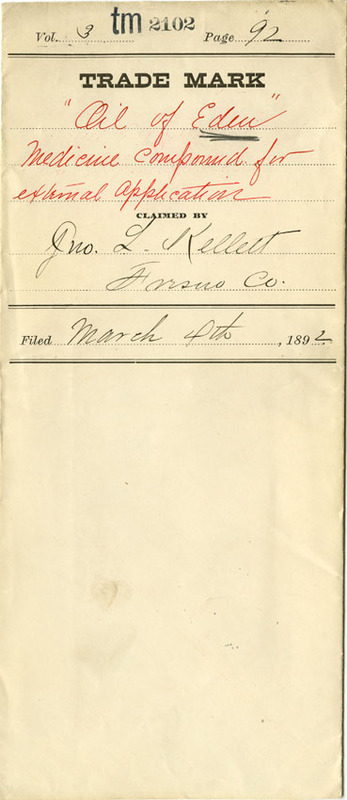 tm 2102
Vol. 3 Page 92
TRADE MARK
"Oil of Eden"
Medicine Compound for
external application
CLAIMED BY
Jno. L. Kellett
Fresno Co.
Filed March 4th, 1892